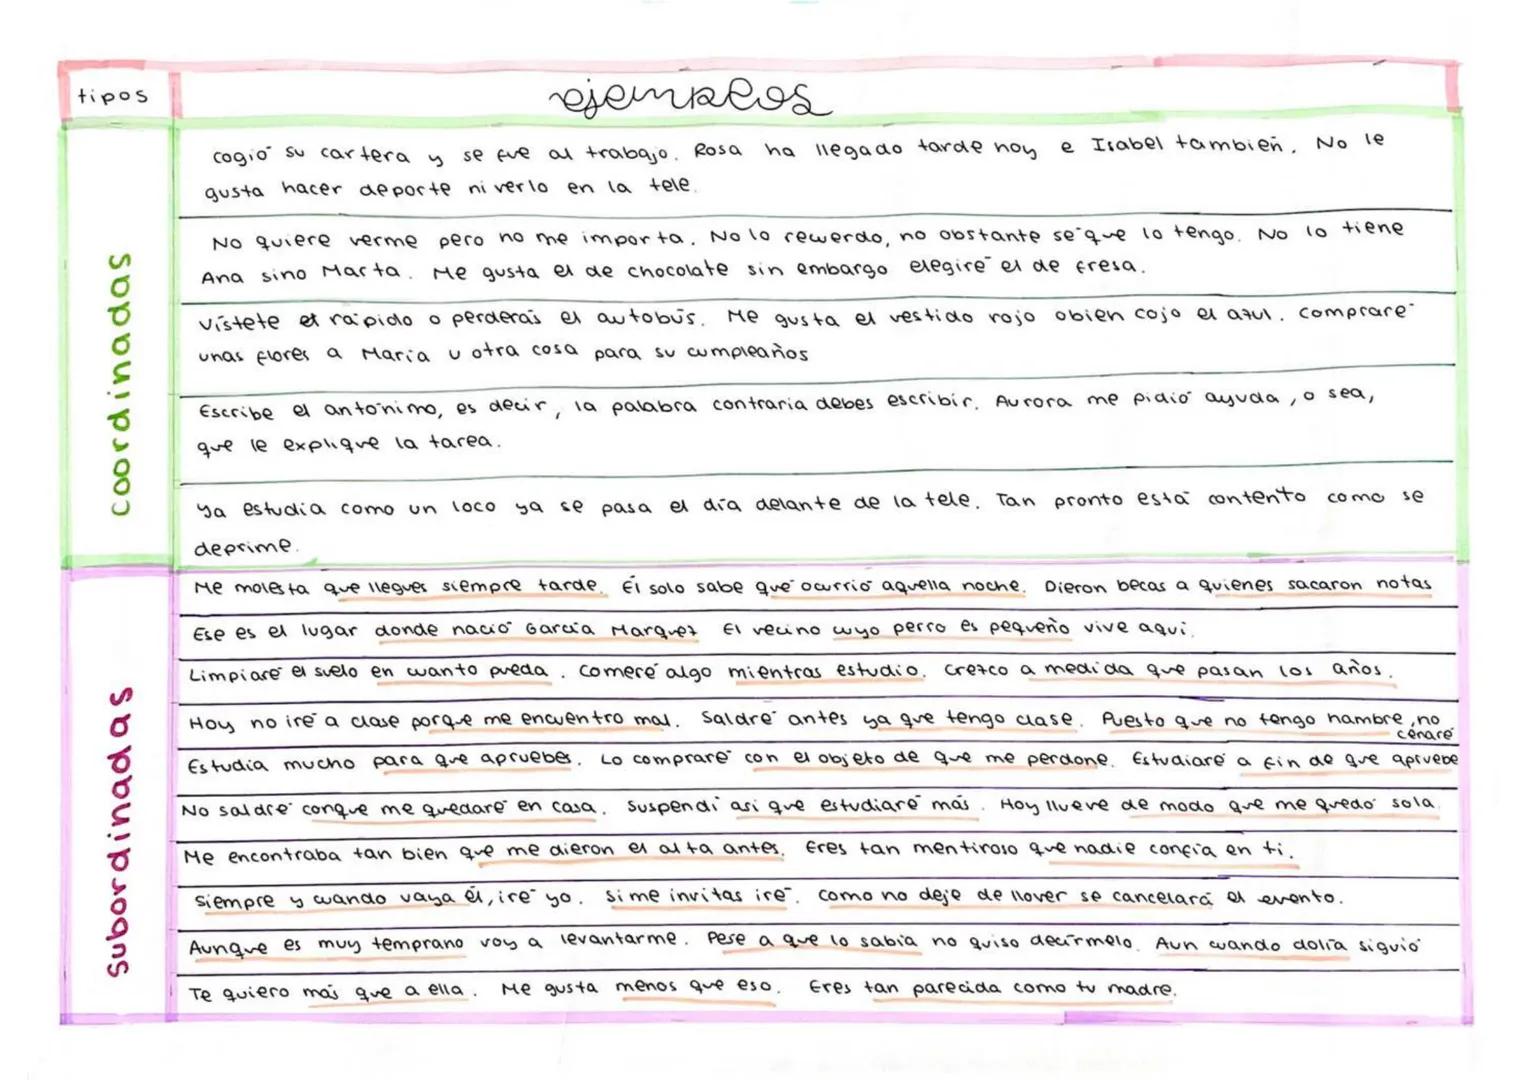 tipos
ejemplos
coordinadas
cogió su cartera y se fue al trabajo. Rosa ha llegado tarde hoy e Isabel también. No le
gusta hacer deporte ni verlo en la tele.
No quiere verme pero no me importa. No lo recuerdo, no obstante sé que lo tengo. No lo tiene
Ana sino Marta. Me gusta el de chocolate sin embargo elegiré el de fresa.
Vístete rápido o perderás el autobús. Me gusta el vestido rojo obien cojo el azul. Compraré
unas flores a María u otra cosa para su cumpleaños
Escribe el antónimo, es decir, la palabra contraria debes escribir. Aurora me pidió ayuda, o sea,
que le explique la tarea.
Ya estudia como un loco ya se pasa el día delante de la tele. Tan pronto está contento como se
deprime.
subordinadas
Me molesta que llegues siempre tarde. Él solo sabe qué ocurrió aquella noche. Dieron becas a quienes sacaron notas
Ese es el lugar donde nació García Marquez El vecino cuyo perro es pequeño vive aquí.
Limpiaré el suelo en cuanto pueda. Comeré algo mientras estudio. Crezco a medida que pasan los años.
Hoy no iré a clase porque me encuentro mal. Saldré antes ya que tengo clase. Puesto que no tengo hambre, no
cenaré
Estudia mucho para que apruebes. Lo compraré con el objeto de que me perdone. Estudiaré a fin de que apruebe
No saldré conque me quedaré en casa. Suspendí así que estudiaré más. Hoy llueve de modo que me quedó sola.
Me encontraba tan bien que me dieron el alta antes. Eres tan mentiroso que nadie confía en ti.
Siempre y cuando vaya él, iré yo. Si me invitas iré. Como no deje de llover se cancelará el evento.
Aunque es muy temprano voy a levantarme. Pese a que lo sabía no quiso decírmelo. Aun cuando dolía siguió
Te quiero más que a ella. Me gusta menos que eso. Eres tan parecida como tu madre.